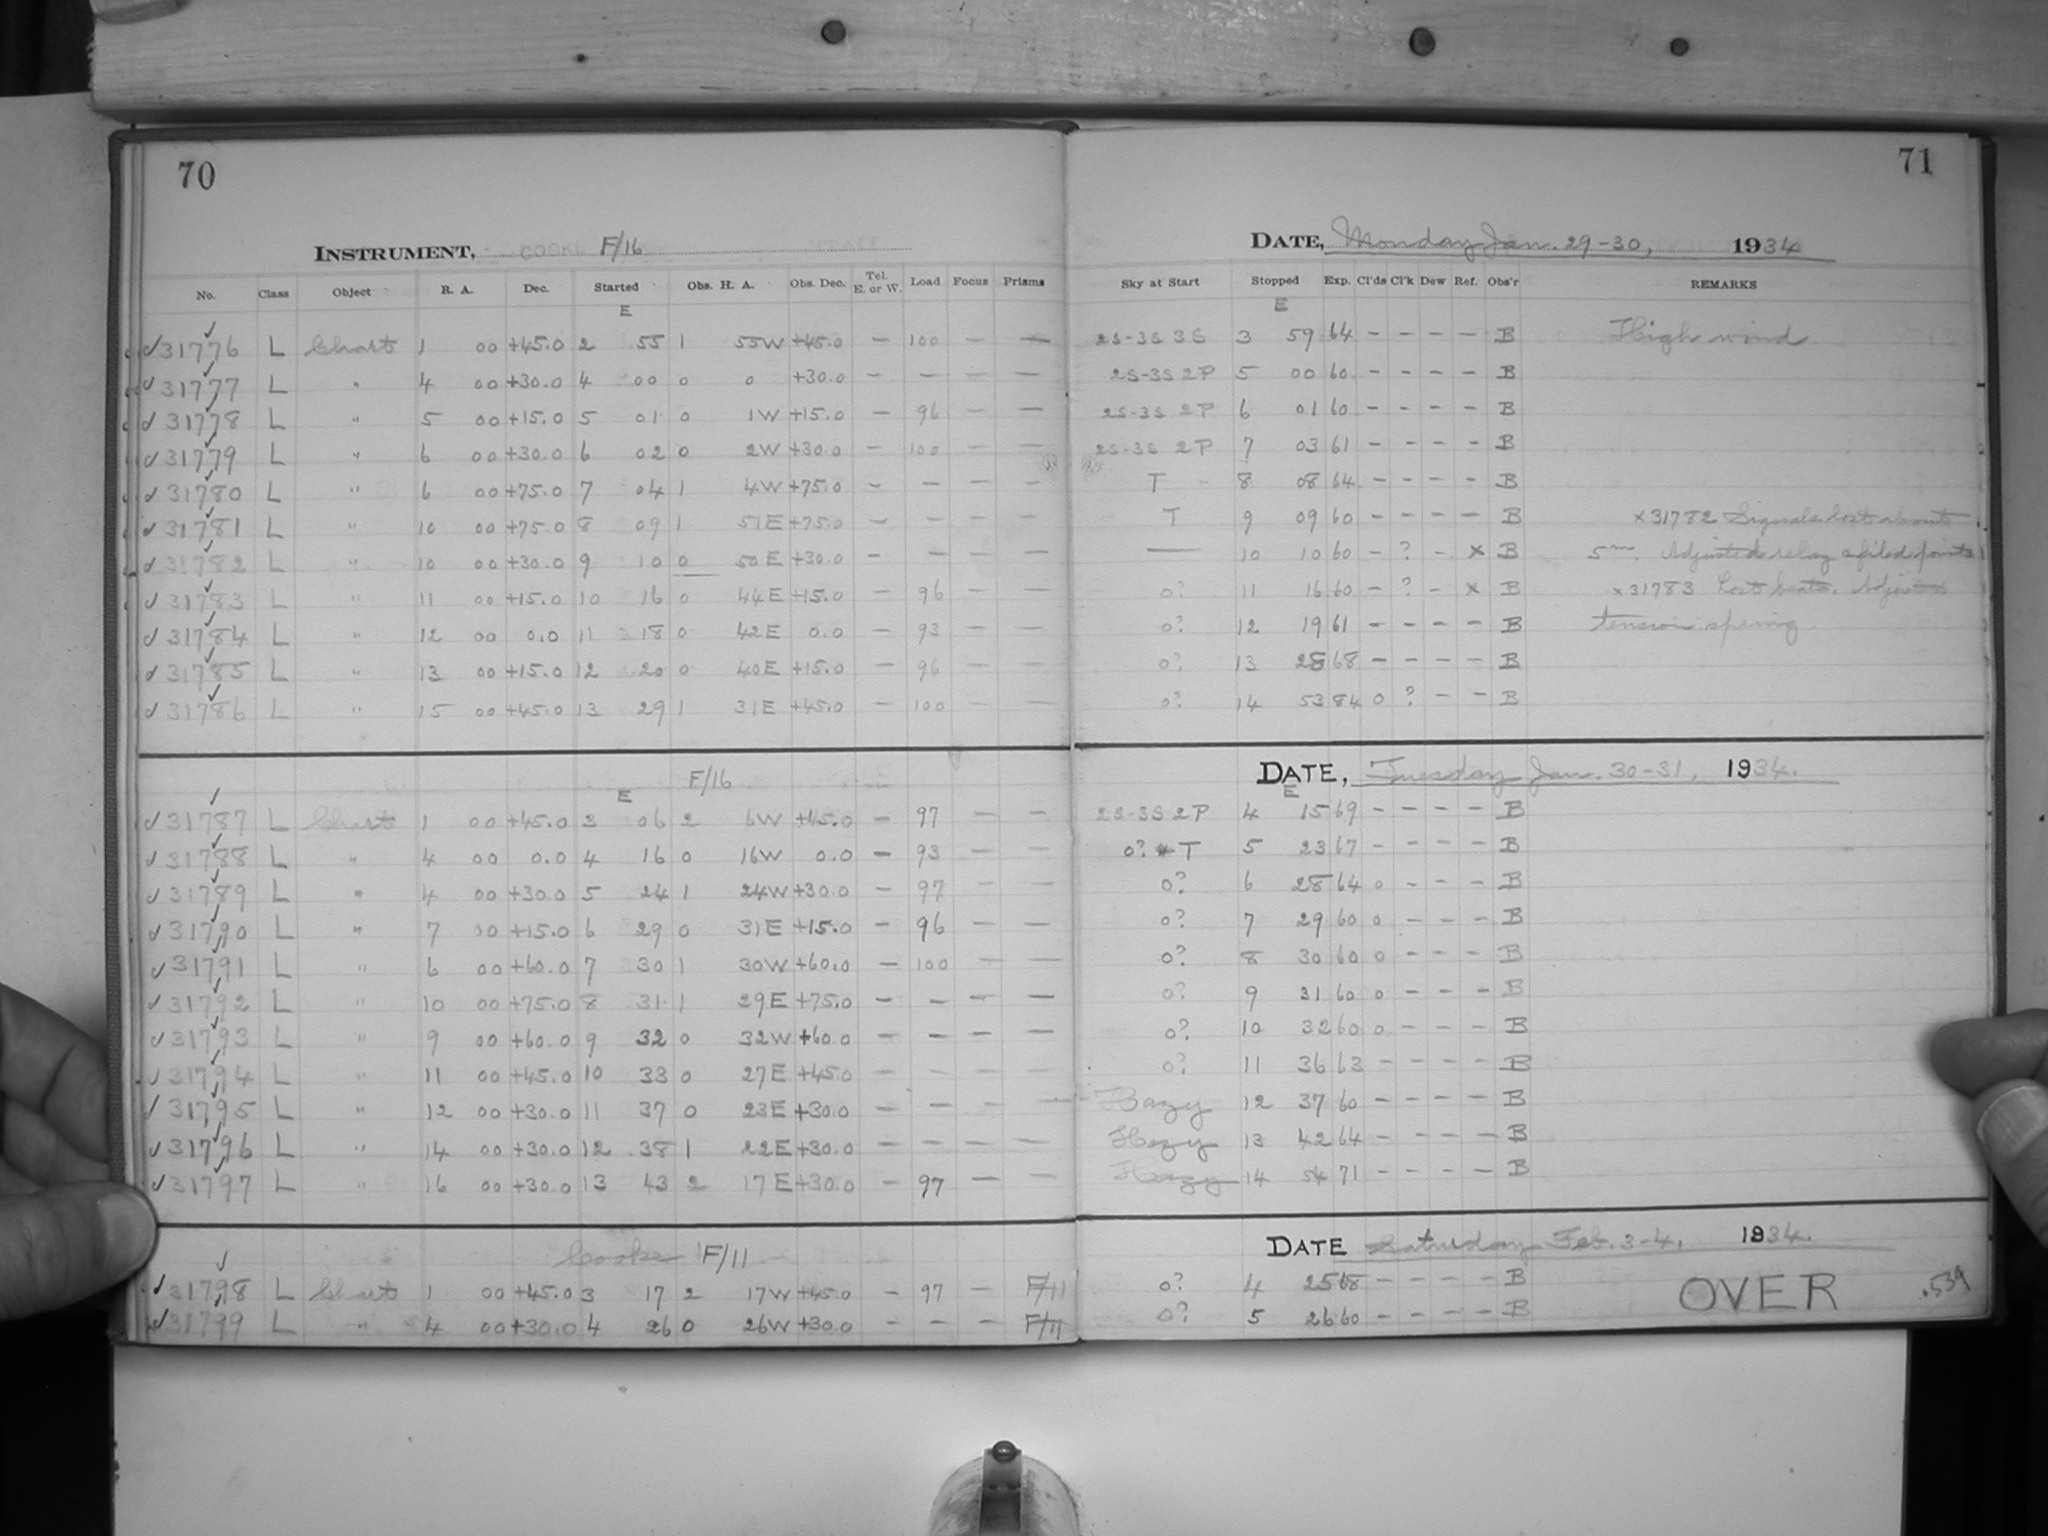 70
INSTRUMENT, COOKE F/16
No. Class Object R. A. Dec. Started Obs. H. A. Obs. Dec. Tel. E. or W. Load Focus Prisms
E
31776 L Chart 1 00 +45.0 2 55 1 55W +45.0 - 100 - -
31777 L " 4 00 +30.0 4 00 0 0 +30.0 - - - -
31778 L " 5 00 +15.0 5 01 0 1W +15.0 - 96 - -
31779 L " 6 00 +30.0 6 02 0 2W +30.0 - 100 - -
31780 L " 6 00 +75.0 7 04 1 4W +75.0 - - - -
31781 L " 10 00 +75.0 8 09 1 51E +75.0 - - - -
31782 L " 10 00 +30.0 9 10 0 50E +30.0 - - - -
31783 L " 11 00 +15.0 10 16 0 44E +15.0 - 96 - -
31784 L " 12 00 0.0 11 18 0 42E 0.0 - 93 - -
31785 L " 13 00 +15.0 12 20 0 40E +15.0 - 96 - -
31786 L " 15 00 +45.0 13 29 1 31E +45.0 - 100 - -
F/16
E
31787 L Chart 1 00 +45.0 3 06 2 6W +45.0 - 97 - -
31788 L " 4 00 0.0 4 16 0 16W 0.0 - 93 - -
31789 L " 4 00 +30.0 5 24 1 24W +30.0 - 97 - -
31790 L " 7 00 +15.0 6 29 0 31E +15.0 - 96 - -
31791 L " 6 00 +60.0 7 30 1 30W +60.0 - 100 - -
31792 L " 10 00 +75.0 8 31 1 29E +75.0 - - - -
31793 L " 9 00 +60.0 9 32 0 32W +60.0 - - - -
31794 L " 11 00 +45.0 10 33 0 27E +45.0 - - - -
31795 L " 12 00 +30.0 11 37 0 23E +30.0 - - - -
31796 L " 14 00 +30.0 12 38 1 22E +30.0 - - - -
31797 L " 16 00 +30.0 13 43 2 17E +30.0 - 97 - -
Cooke F/11
31798 L Chart 1 00 +45.0 3 17 2 17W +45.0 - 97 - F/11
31799 L " 4 00 +30.0 4 26 0 26W +30.0 - - - F/11
71
DATE, Monday Jan. 29-30, 1934
Sky at Start Stopped Exp. Cl'ds Cl'k Dew Ref. Obs'r REMARKS
E
2S-3S 3S 3 59 64 - - - - B High wind
2S-3S 2P 5 00 60 - - - - B
2S-3S 2P 6 01 60 - - - - B
2S-3S 2P 7 03 61 - - - - B
T 8 08 64 - - - - B
T 9 09 60 - - - - B x31782 Signals lost about
— 10 10 60 - ? - x B 5m. Adjusted relay & filed points
0? 11 16 60 - ? - x B x31783 Lost beats. Adjusted
0? 12 19 61 - - - - B tension spring.
0? 13 28 68 - - - - B
0? 14 53 84 0 ? - - B
DATE, Tuesday Jan. 30-31, 1934.
E
2S-3S 2P 4 15 69 - - - - B
0? T 5 23 67 - - - - B
0? 6 28 64 0 - - - B
0? 7 29 60 0 - - - B
0? 8 30 60 0 - - - B
0? 9 31 60 0 - - - B
0? 10 32 60 0 - - - B
0? 11 36 63 - - - - B
Hazy 12 37 60 - - - - B
Hazy 13 42 64 - - - - B
Hazy 14 54 71 - - - - B
DATE Saturday Feb. 3-4, 1934.
0? 4 25 68 - - - - B OVER .539
0? 5 26 60 - - - - B